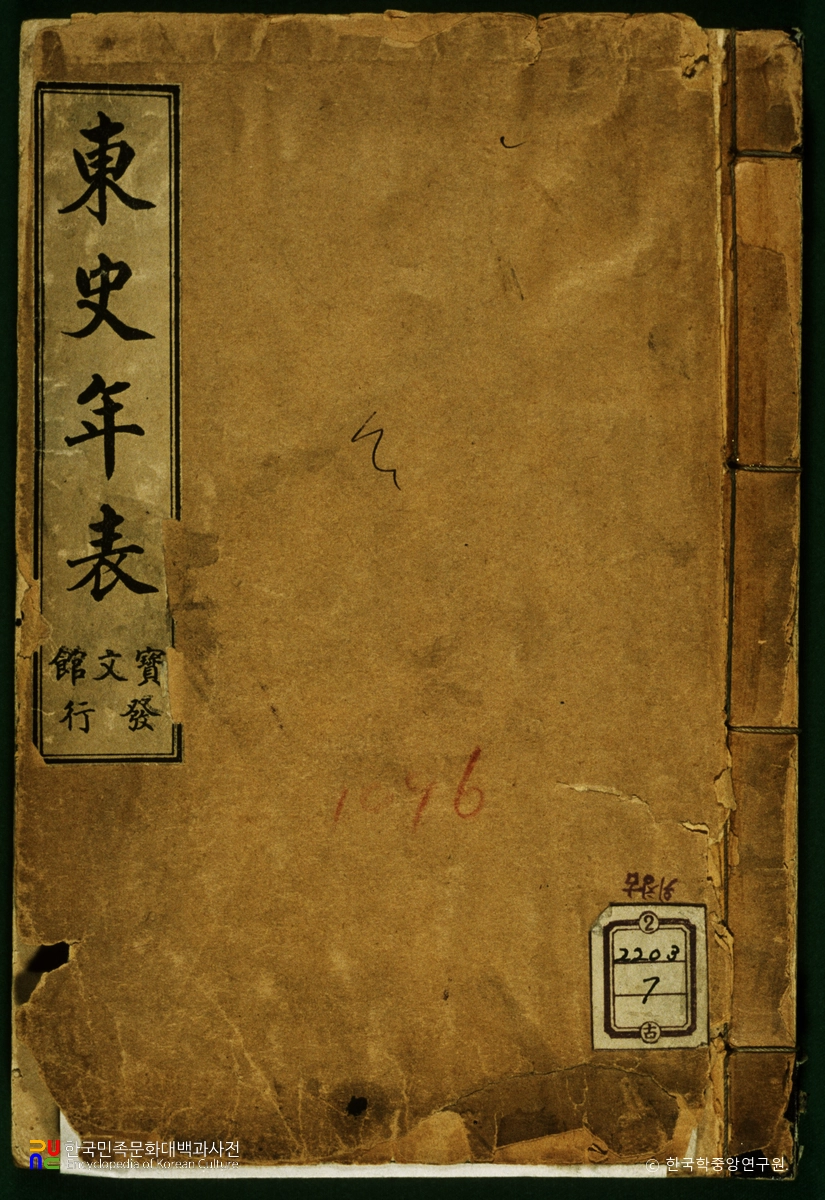 東史年表
寶文館
發行
1076
2
2203
7
古
한국민족문화대백과사전
Encyclopedia of Korean Culture
© 한국학중앙연구원